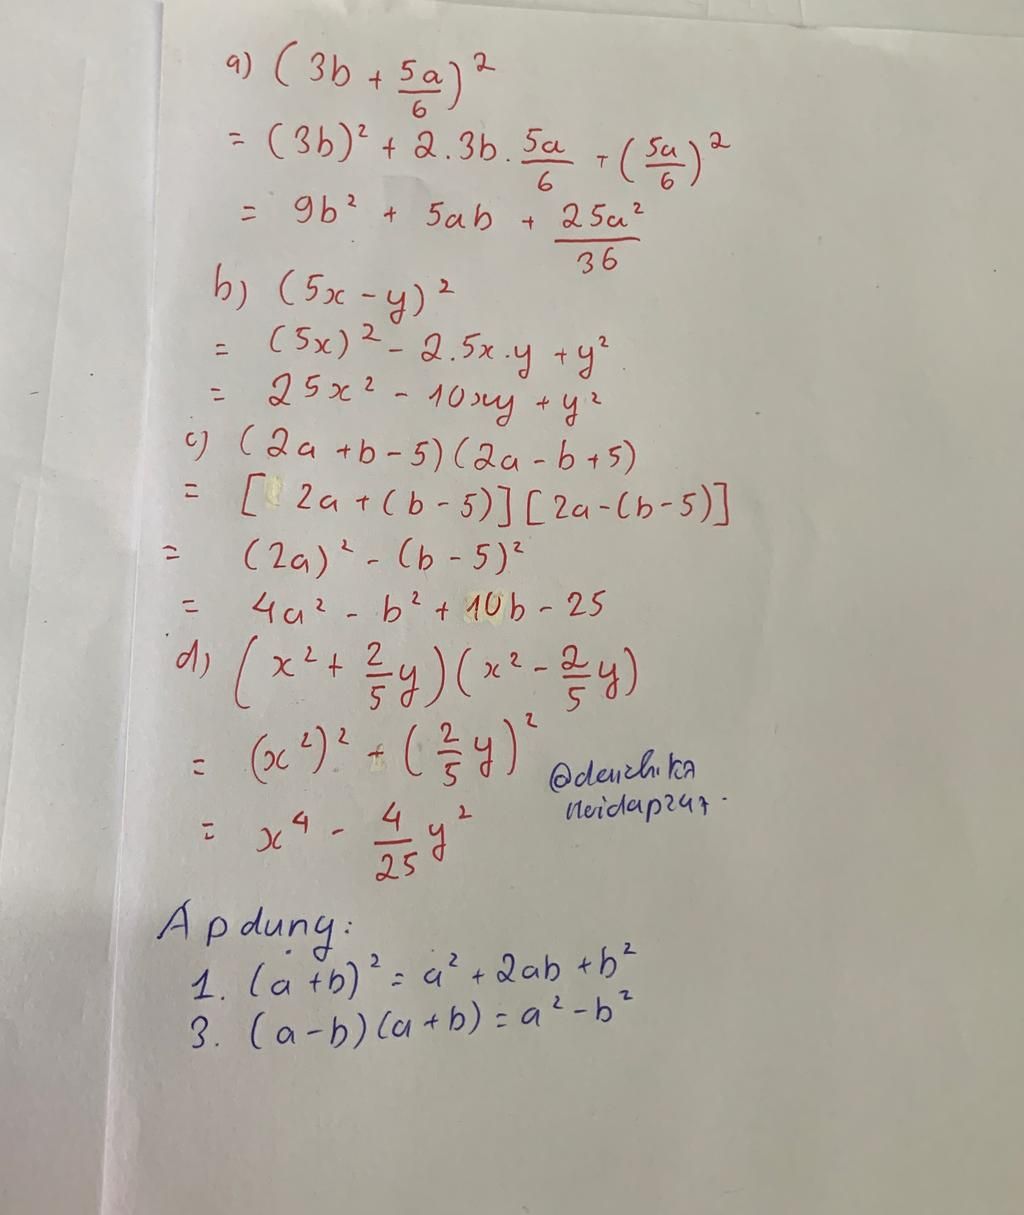 a) (3b + 5a/6)²
= (3b)² + 2.3b. 5a/6 + (5a/6)²
= 9b² + 5ab + 25a²/36
b) (5x - y)²
= (5x)² - 2.5x.y + y²
= 25x² - 10xy + y²
c) (2a + b - 5)(2a - b + 5)
= [2a + (b - 5)][2a - (b - 5)]
= (2a)² - (b - 5)²
= 4a² - b² + 10b - 25
d) (x² + 2/5 y)(x² - 2/5 y)
= (x²)² + (2/5 y)²
= x⁴ - 4/25 y²
Áp dụng:
1. (a + b)² = a² + 2ab + b²
3. (a - b)(a + b) = a² - b²